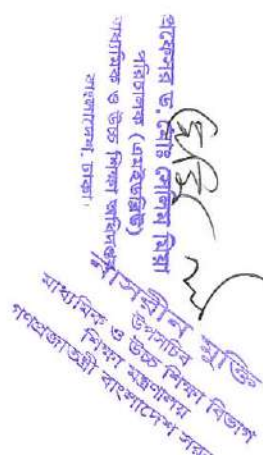 প্রফেসর ড. মোঃ সেলিম মিয়া
পরিচালক (এমইউব্লিউ)
মাধ্যমিক ও উচ্চ শিক্ষা অধিদপ্তর
বাংলাদেশ, ঢাকা।
নাসরীন মুক্তি
উপসচিব
মাধ্যমিক ও উচ্চ শিক্ষা বিভাগ
শিক্ষা মন্ত্রণালয়
গণপ্রজাতন্ত্রী বাংলাদেশ সরক